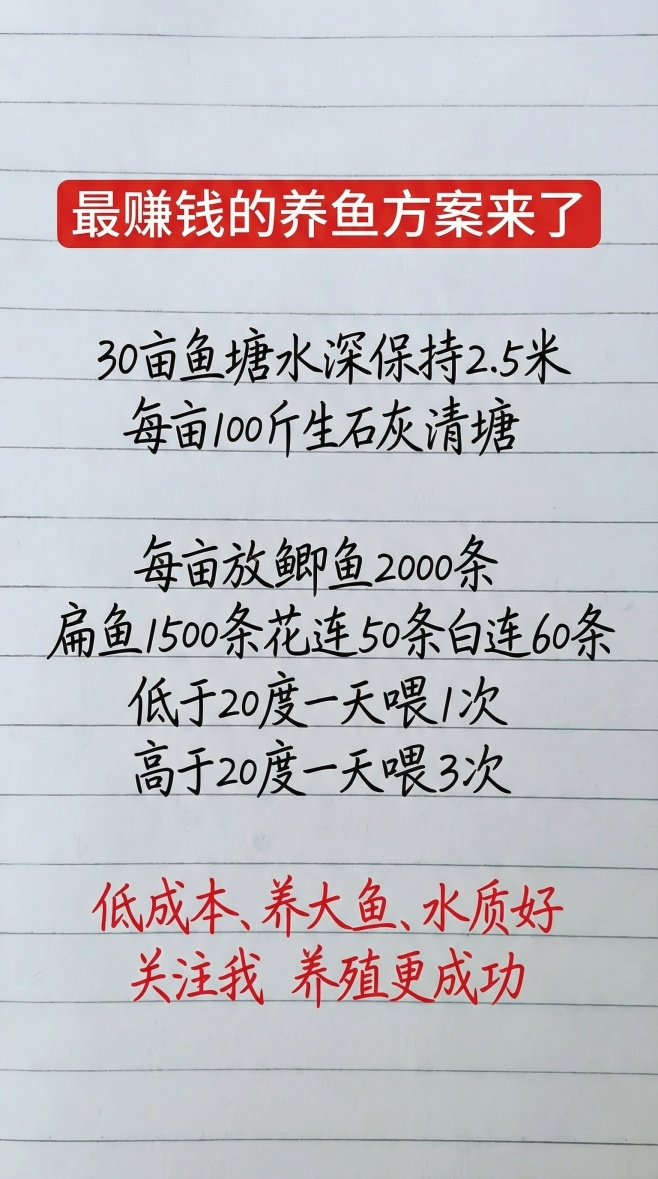 最赚钱的养鱼方案来了
30亩鱼塘水深保持2.5米
每亩100斤生石灰清塘
每亩放鲫鱼2000条
扁鱼1500条花连50条白连60条
低于20度一天喂1次
高于20度一天喂3次
低成本、养大鱼、水质好
关注我 养殖更成功